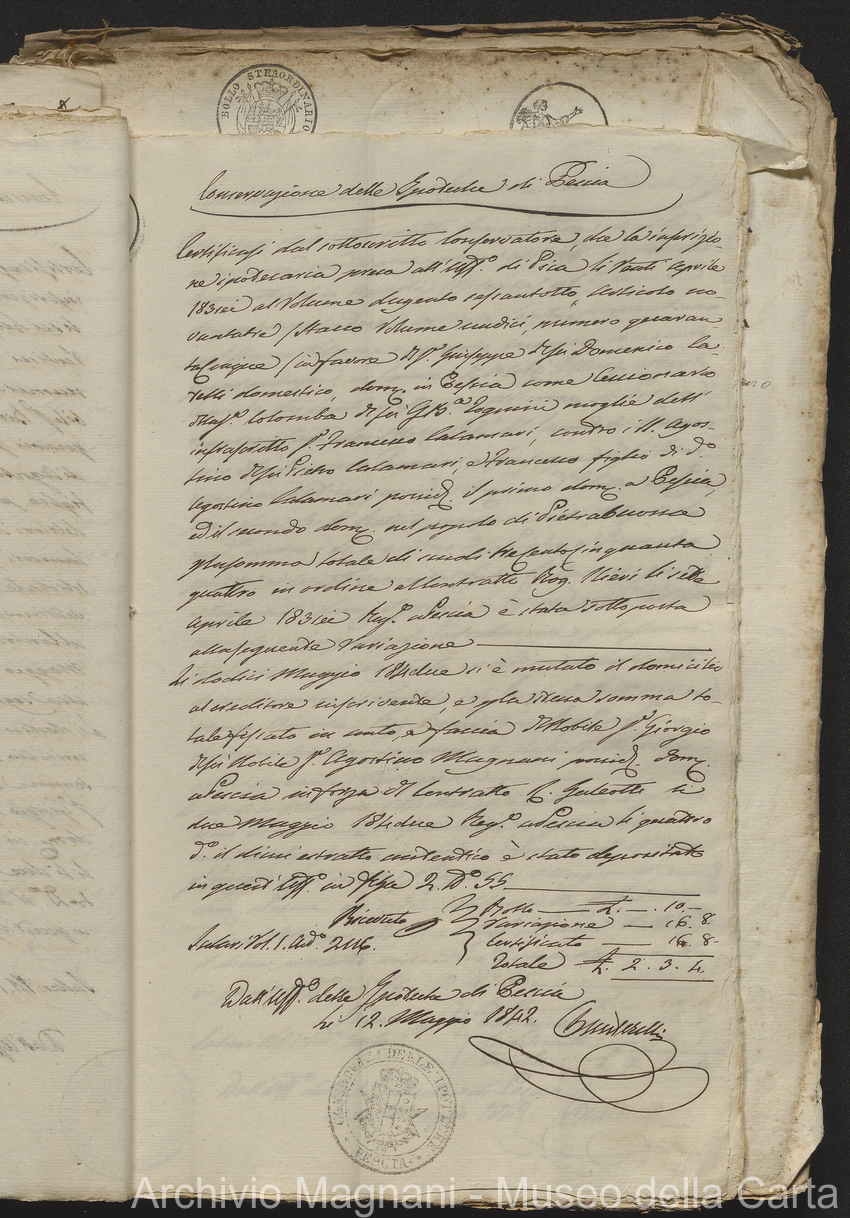 BOLLO STRAORDINARIO
Conservazione delle Ipoteche di Pescia
Certificasi dal sottoscritto Conservatore, che la inscrizio
ne ipotecaria presa all'Uff.° di Pscia li Venti Aprile
183sei al Volume dugento sessantotto, Articolo no-
vantatre (Stacco Volume undici, numero quaran
tacinque) in favore del S.r Giuseppe del fu Domenico
domestico, dom. in Pescia come Cessionario
Colomba di fu G. B.a Pagnini moglie dell'
infrascritto S.r Francesco Calamari, contro i SS. Agos-
tino del fu Pietro Calamari, e Francesco figlio di d.°
Agostino Calamari possid. il primo dom. a Pescia,
ed il secondo dom. nel popolo di Pietrabuona
p la somma totale di scudi trecentocinquanta
quattro in ordine al Contratto Rog. Nieri li sette
Aprile 183sei Reg.° a Pescia è stata sottoposta
alla seguente Variazione
Li dodici Maggio 184due si è mutato il domicilio
al creditore inscrivente, e p la stessa somma to-
tale fissato in conto, e faccia del Nobile S.r Giorgio
del fu Nobile S.r Agostino Magnani possid. dom.
a Pescia in forza del Contratto R. Galeotti li
due Maggio 184due Reg.° a Pescia li quattro
d.° il di cui estratto autentico è stato depositato
in quest'Uff.° in filza 2. N.° 55.
Ricevuto
Bollo — £. — . 10. —
Variazione — 16. 8.
Vol. 1. Art.° 2116.
Certificato — 16. 8.
Totale £. 2. 3. 4.
Dall'Uff.° delle Ipoteche di Pescia
li 12. Maggio 1842.
CONSERVAZ. DELLE IPOTECHE
PESCIA
Archivio Magnani - Museo della Carta